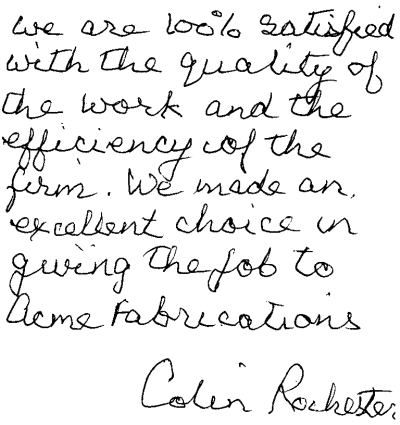 we are 100% satisfied
with the quality of
the work and the
efficiency of the
firm. We made an
excellent choice in
giving the job to
Acme Fabrications
Colin Rochester